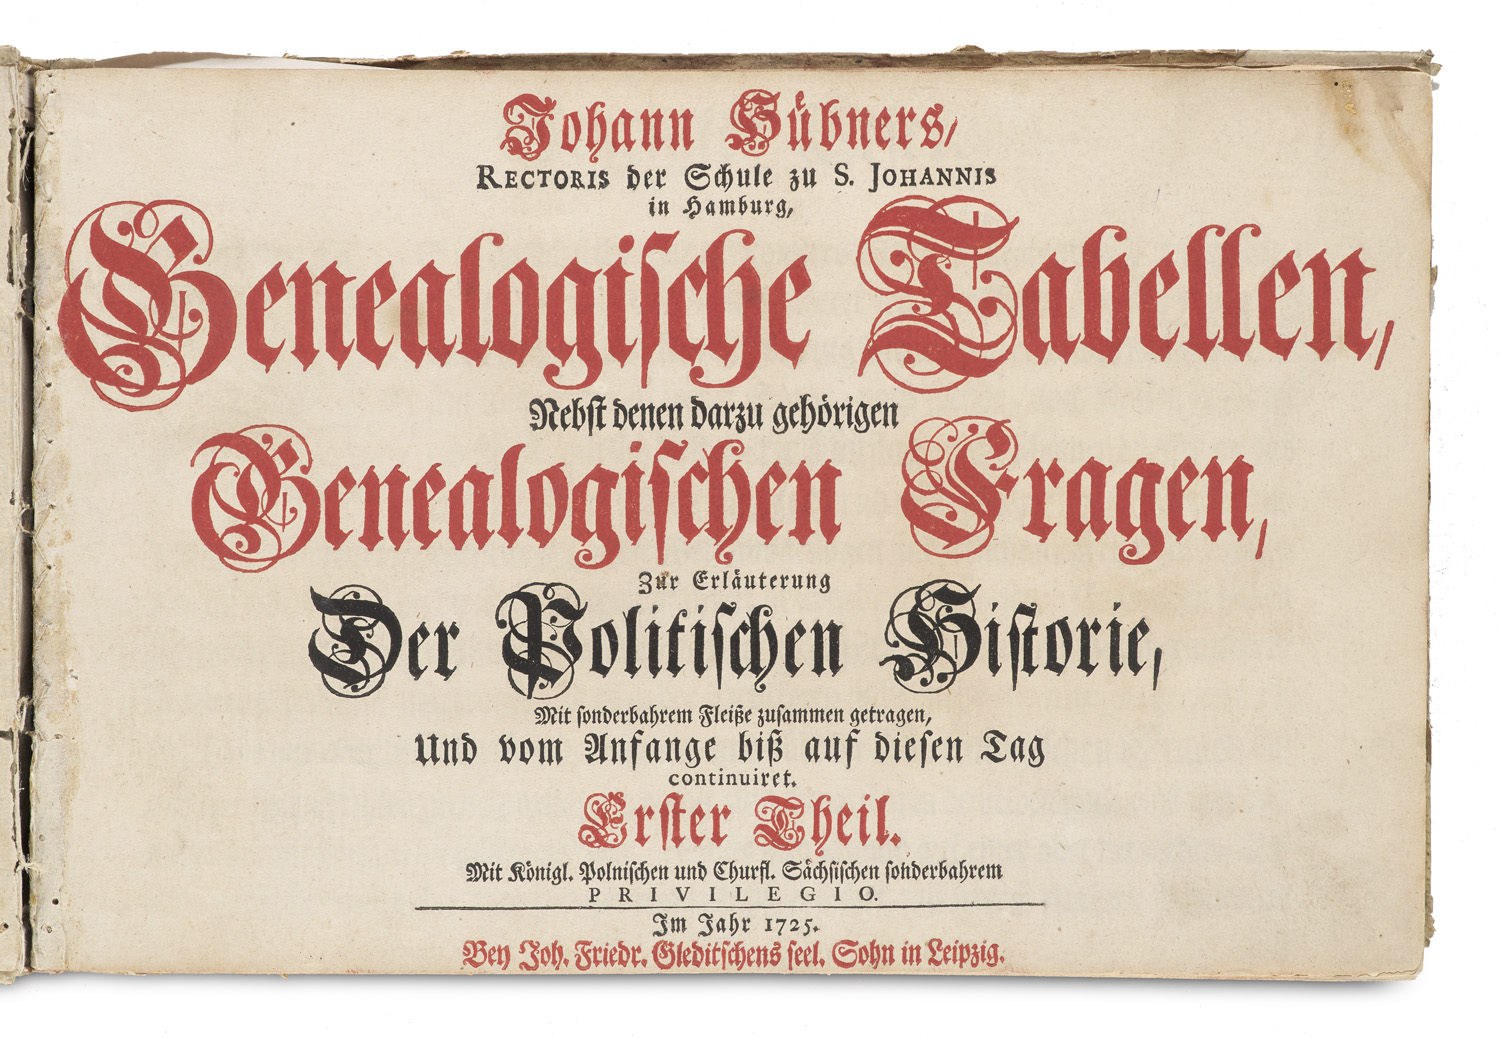 Johann Hübners,
RECTORIS der Schule zu S. JOHANNIS
in Hamburg,
Genealogische Tabellen,
Nebst denen darzu gehörigen
Genealogischen Fragen,
Zur Erläuterung
Der Politischen Historie,
Mit sonderbahrem Fleiße zusammen getragen,
Und vom Anfange biß auf diesen Tag
continuiret.
Erster Theil.
Mit Königl. Polnischen und Churfl. Sächsischen sonderbahrem
PRIVILEGIO.
Im Jahr 1725.
Bey Joh. Friedr. Gleditschens seel. Sohn in Leipzig.